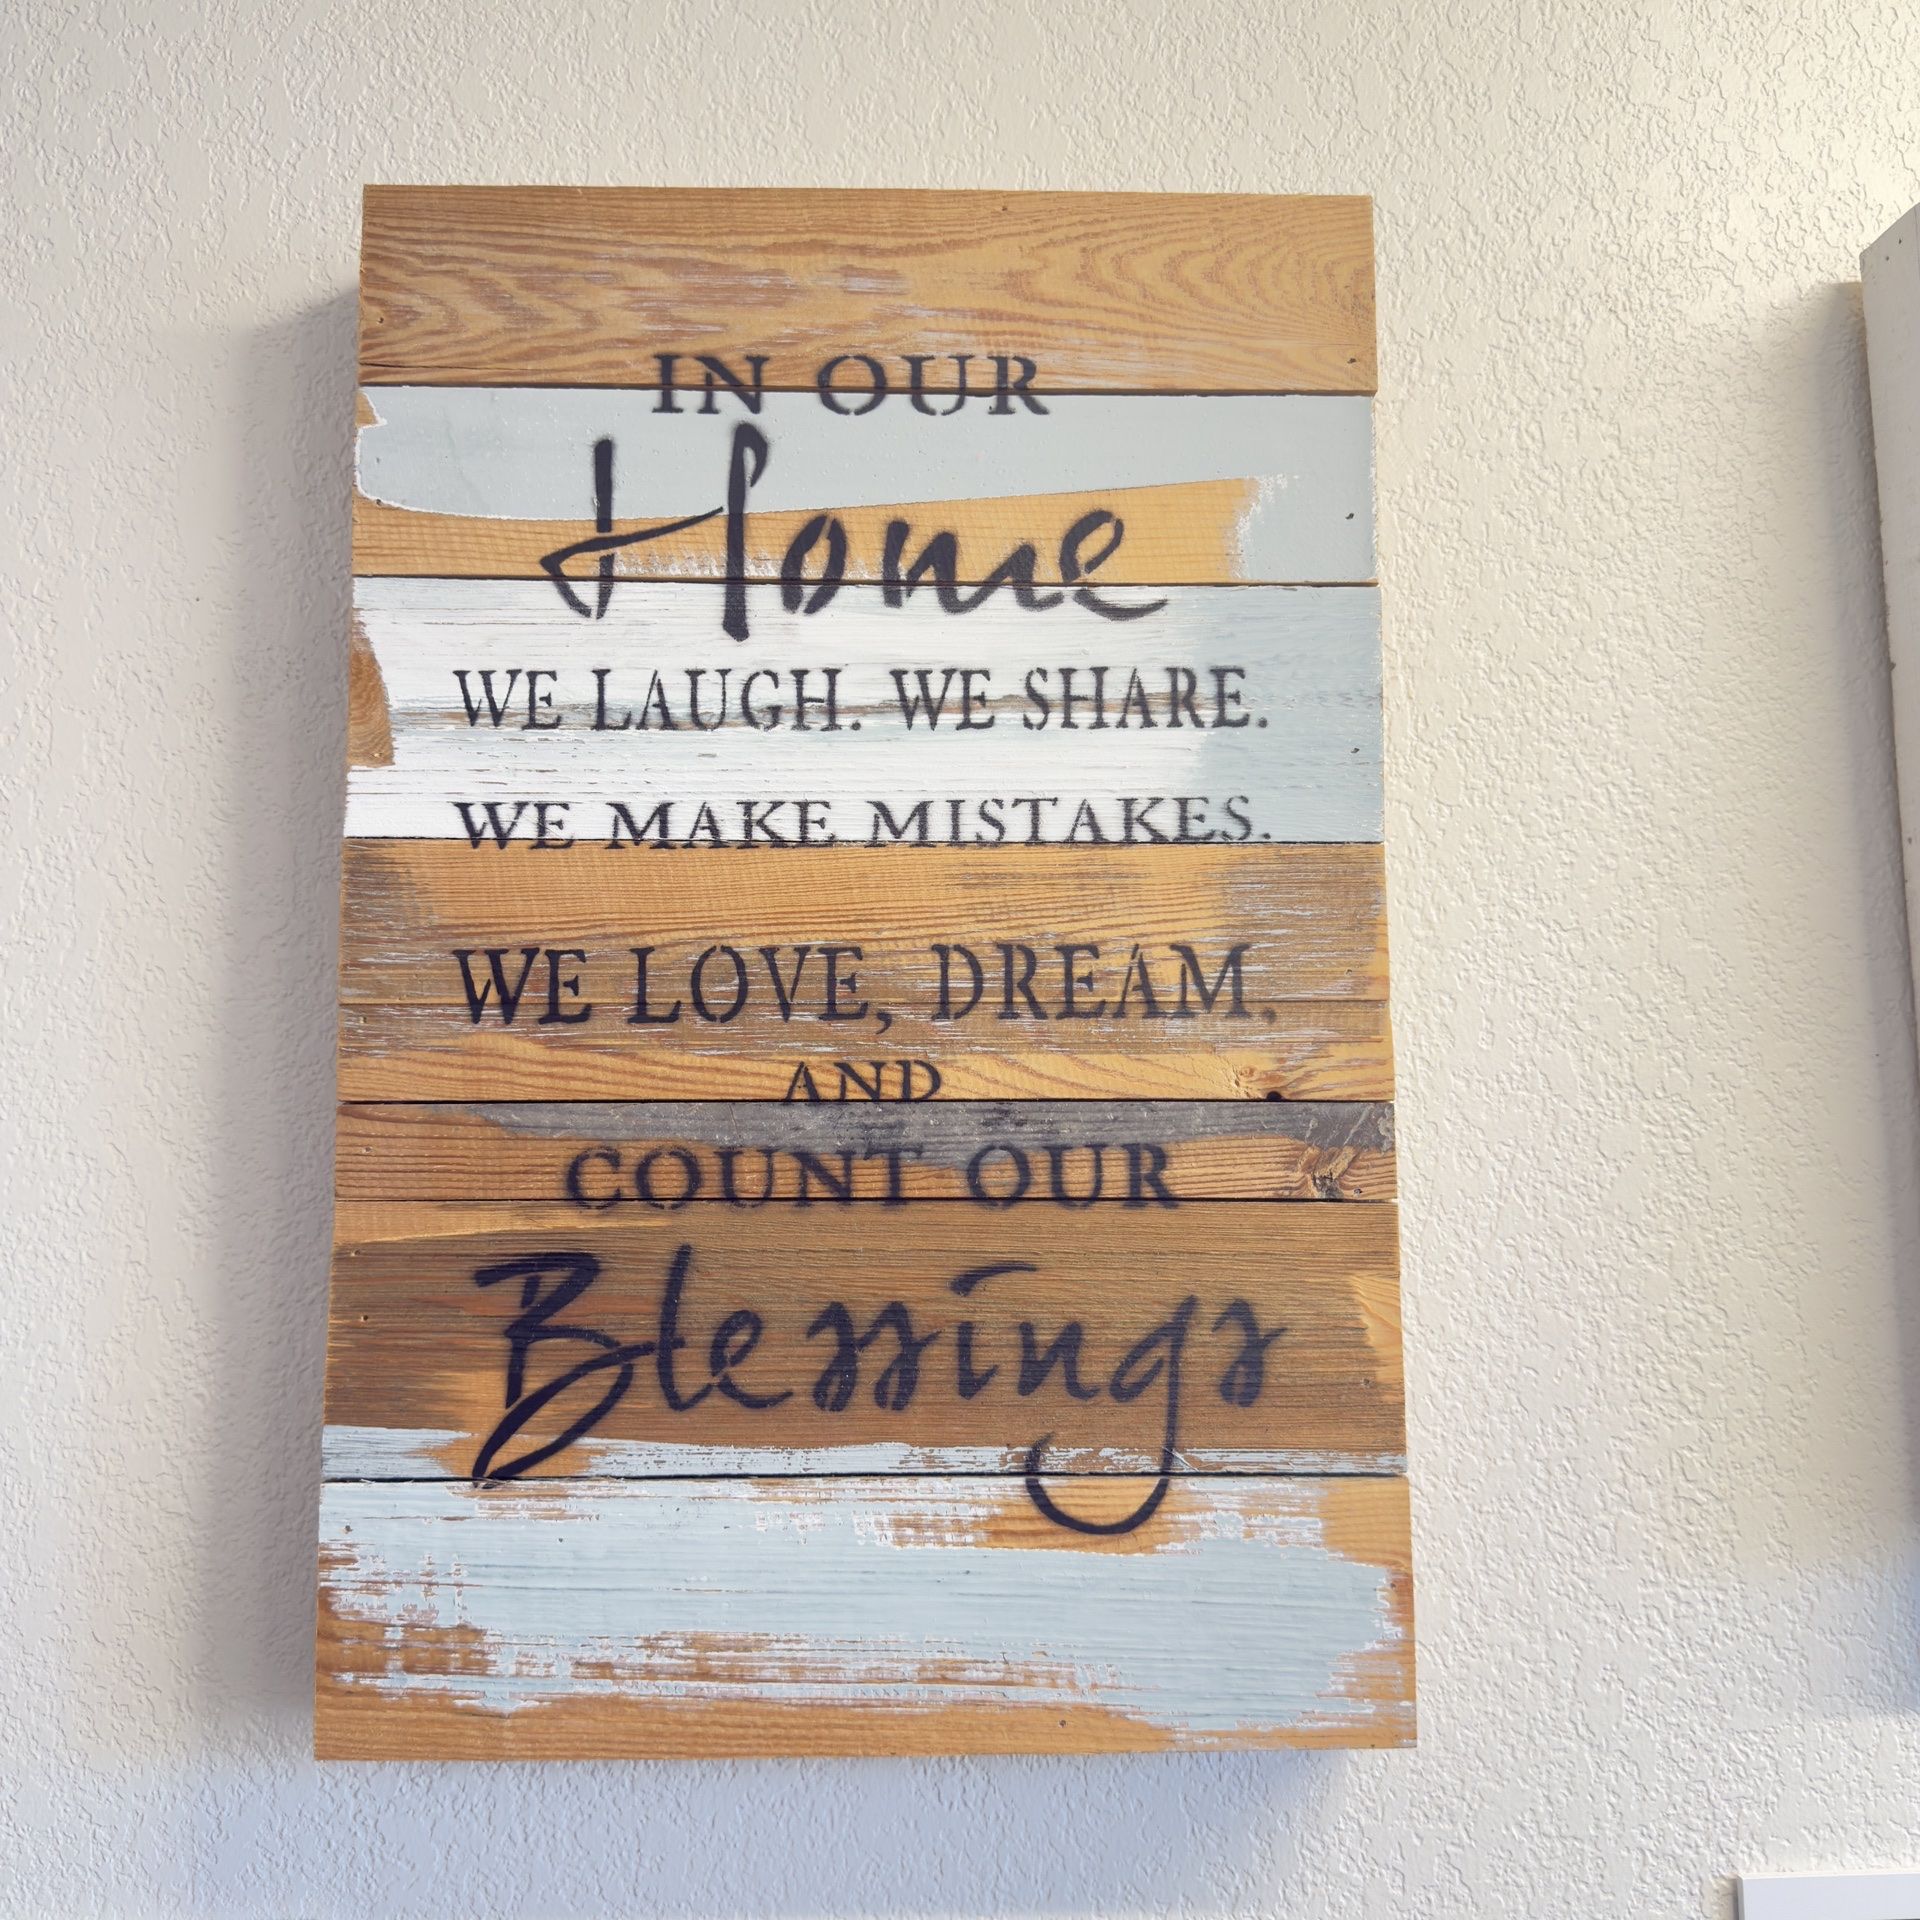 IN OUR
Home
WE LAUGH. WE SHARE.
WE MAKE MISTAKES.
WE LOVE, DREAM,
AND
COUNT OUR
Blessings